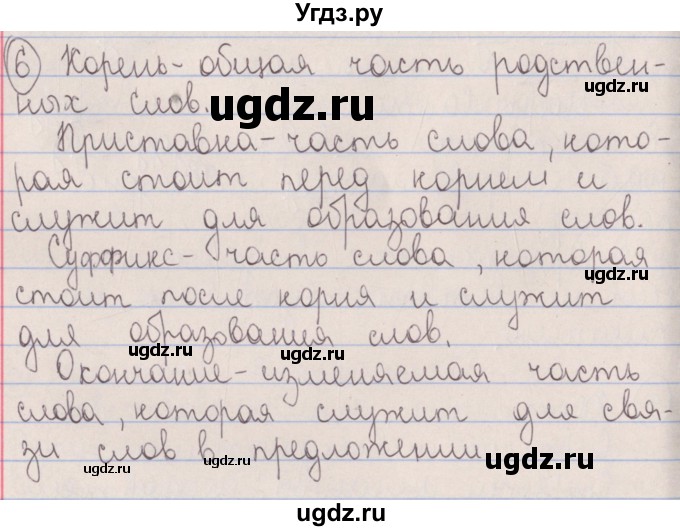 Угдз.ру
6 Корень - общая часть родствен-
ных слов.
ugdz.ru ugdz.ru
Приставка - часть слова, кото-
рая стоит перед корнем и
ugdz.ru
служит для образования слов.
Суффикс - часть слова, которая
ugdz.ru
стоит после корня и служит
для образования слов.
ugdz.ru ugdz.ru
Окончание - изменяемая часть
ugdz.ru
слова, которая служит для свя-
зи слов в предложении
ugdz.ru ugdz.ru ugdz.ru
ugdz.ru